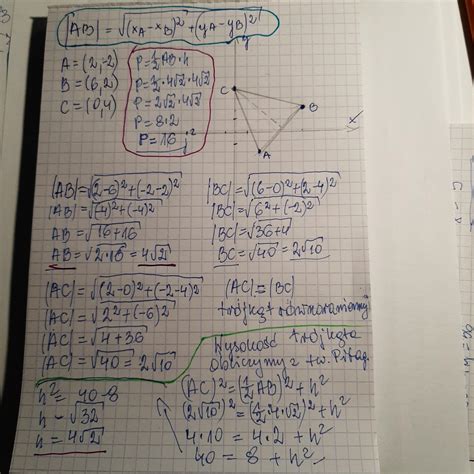 |AB| = √(x_A - x_B)² + (y_A - y_B)²
A = (2,-2)
B = (6,2)
C = (0,4)
P = ½AB·h
P = ½·4√2·4√2
P = 2√2·4√2
P = 8·2
P = 16 j²
y
x
C
B
A
|AB| = √(2-6)² + (-2-2)²
|AB| = √(-4)² + (-4)²
AB = √16+16
AB = √2·16 = 4√2
|BC| = √(6-0)² + (2-4)²
|BC| = √6² + (-2)²
|BC| = √36+4
BC = √40 = 2√10
|AC| = √(2-0)² + (-2-4)²
|AC| = √2² + (-6)²
|AC| = √4+36
|AC| = √40 = 2√10
|AC| = |BC|
trójkąt równoramienny
Wysokość trójkąta
obliczymy z tw. Pitag.
(AC)² = (½AB)² + h²
(2√10)² = (½4·√2)² + h²
4·10 = 4·2 + h²
40 = 8 + h²
h² = 40-8
h = √32
h = 4√2